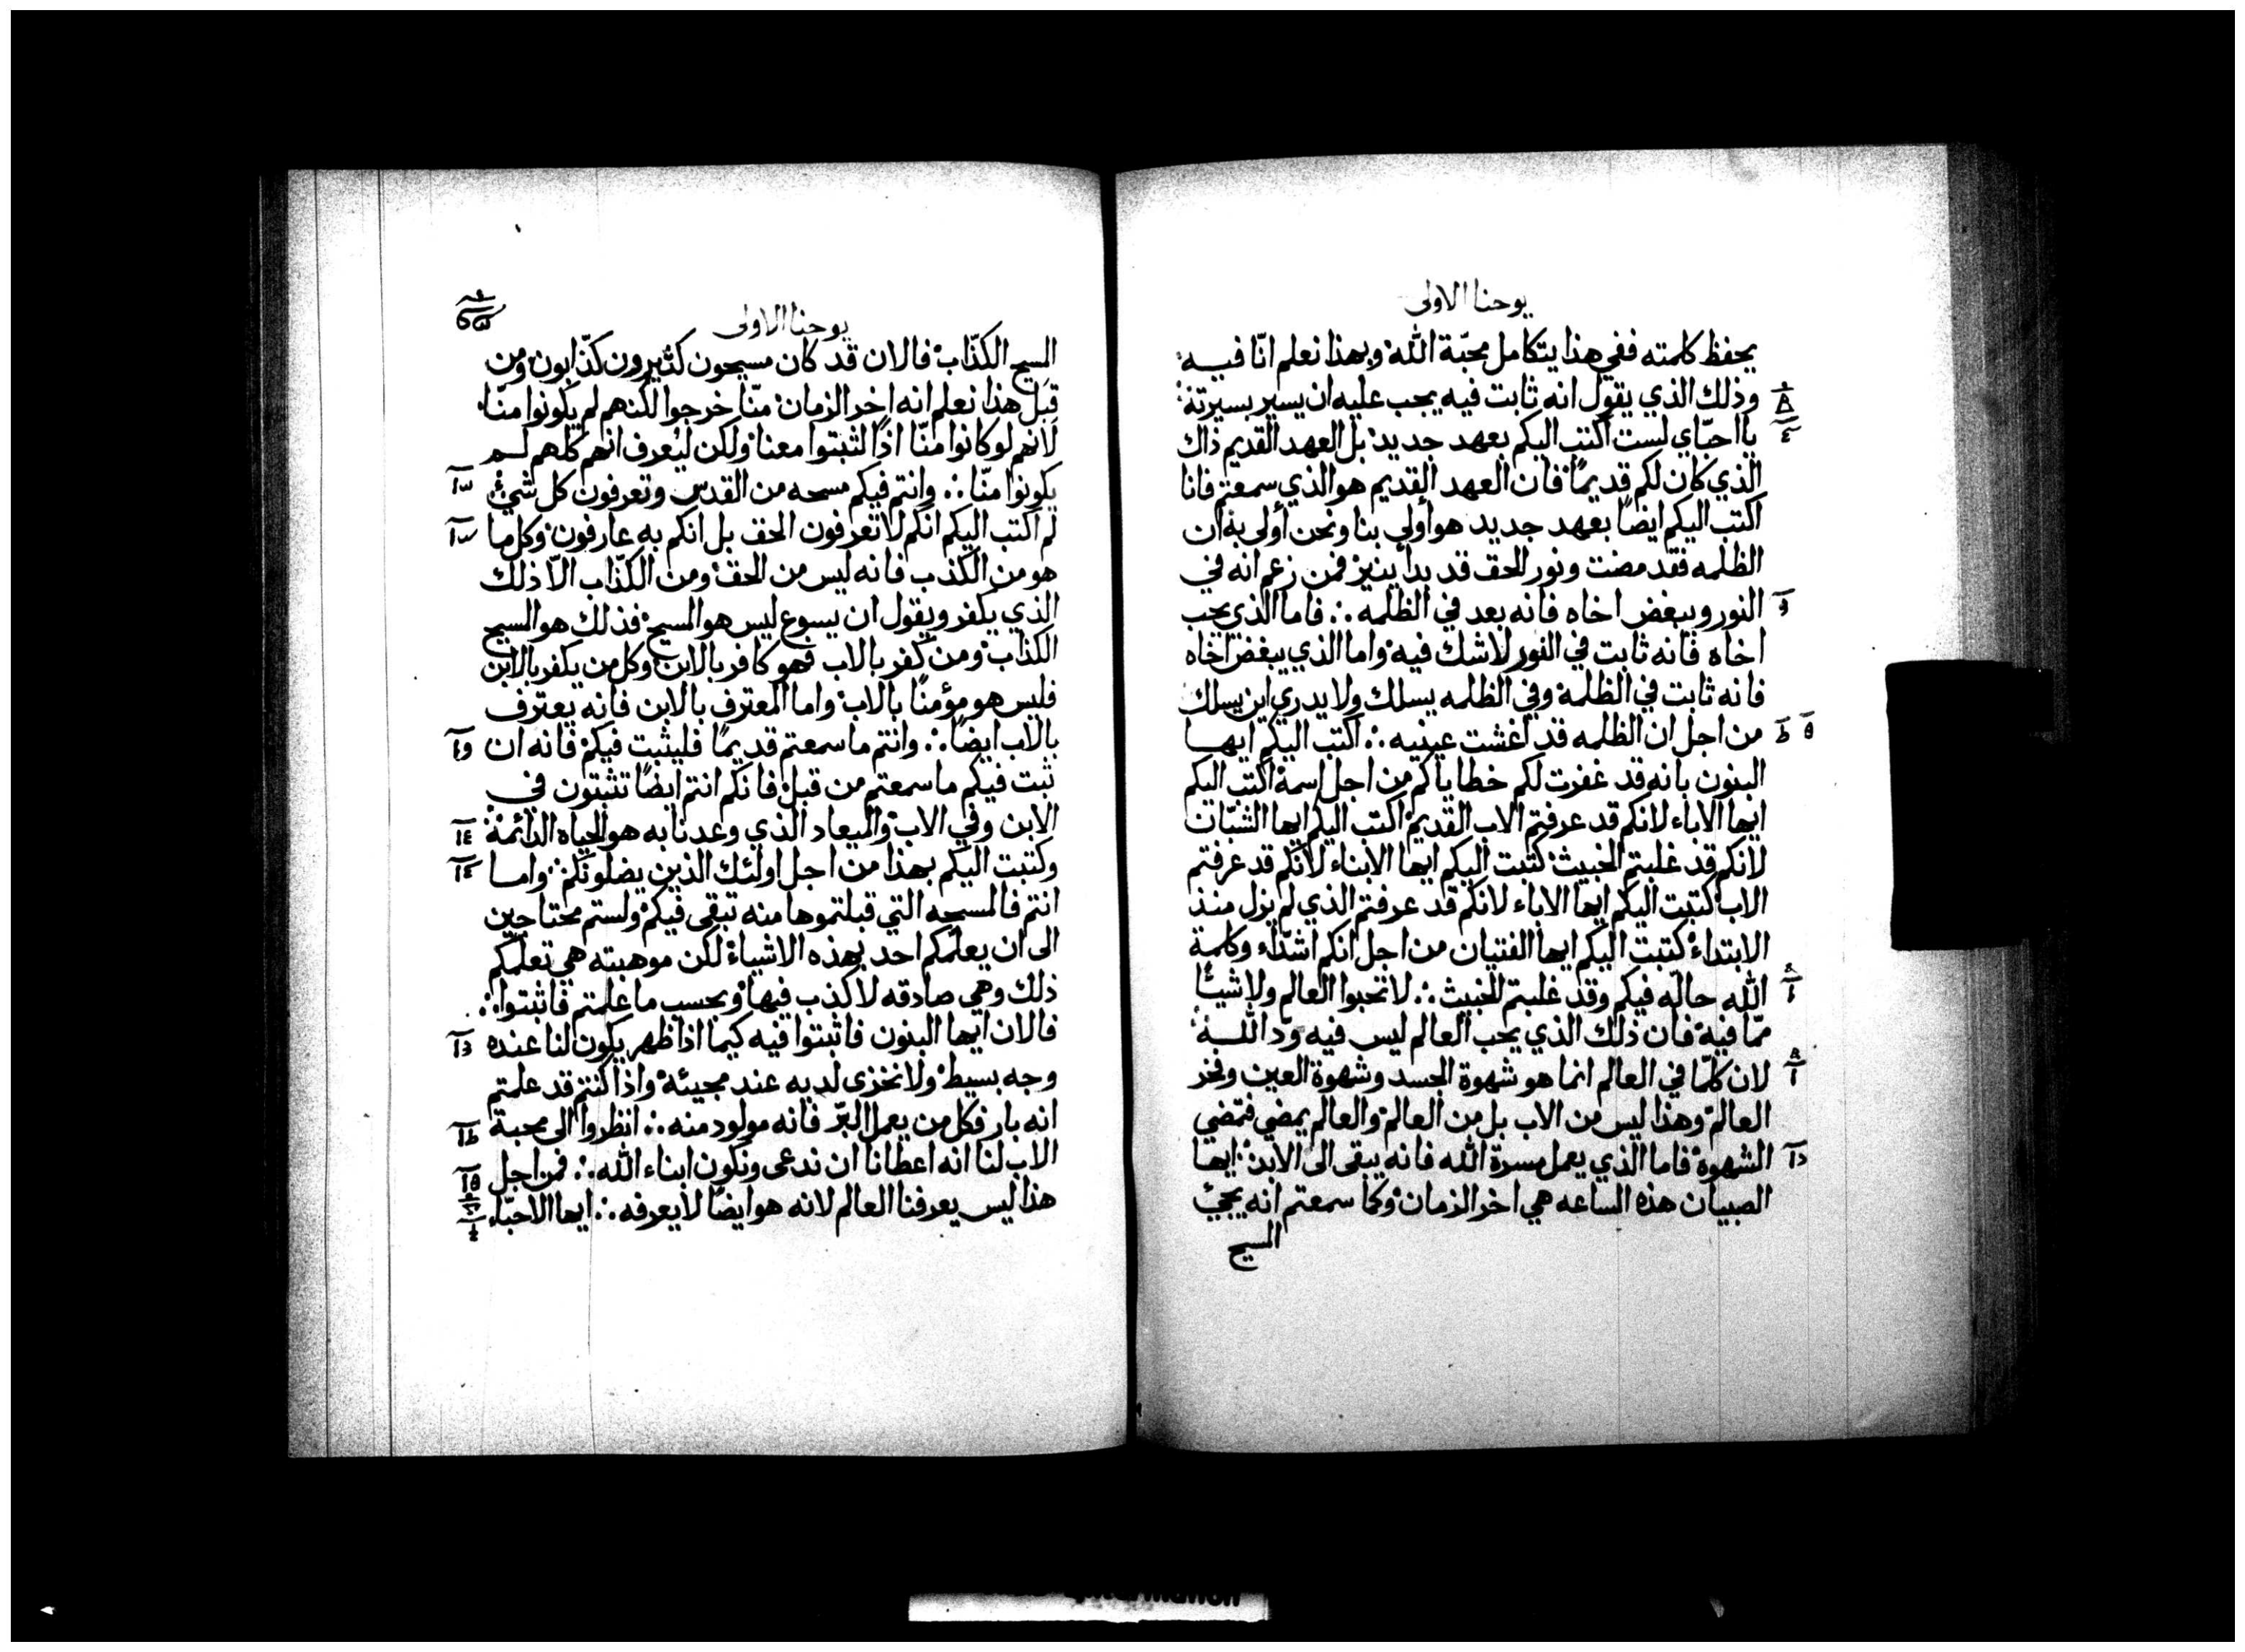 يوحنا الاولى
يحفظ كلمته ففي هذا يتكامل محبّة الله وبهذا نعلم انّا فيه
وذلك الذي يقول انه ثابت فيه يجب عليه ان يسير بسيرته
يا احبّاي لست اكتب اليكم بعهد جديد بل العهد القديم ذاك
الذي كان لكم قديمًا فان العهد القديم هو الذي سمعتم فانا
اكتب اليكم ايضًا بعهد جديد هو أولى بنا ونحن أولى به ان
الظلمه فقد مضت ونور الحق قد بدأ ينير فمن زعم انه في
النور ويبغض اخاه فانه بعد في الظلمه ∴ فاما الذي يحب
اخاه فانه ثابت في النور لاشك فيه واما الذي يبغض اخاه
فانه ثابت في الظلمة وفي الظلمه يسلك ولا يدري اين يسلك
من اجل ان الظلمه قد اغشت عينيه ∴ اكتب اليكم ايها
البنون بانه قد غفرت لكم خطاياكم من اجل اسمه اكتب اليكم
ايها الاباء لانكم قد عرفتم الاب القديم اكتب اليكم ايها الشبّان
لانكم قد غلبتم الخبيث كتبت اليكم ايها الابناء لانكم قد عرفتم
الاب كتبت اليكم ايها الاباء لانكم قد عرفتم الذي لم يزل منذ
الابتداء كتبت اليكم ايها الفتيان من اجل انكم اشدّاء وكلمة
الله حالّه فيكم وقد غلبتم الخبيث ∴ لا تحبوا العالم ولا شيئًا
ممّا فيه فان ذلك الذي يحب العالم ليس فيه ودّ الله
لان كلمّا في العالم انما هو شهوة الجسد وشهوة العين وفخر
العالم وهذا ليس من الاب بل من العالم والعالم يمضي فتمضي
الشهوة فاما الذي يعمل مسرة الله فانه يبقى الى الابد ايها
الصبيان هذه الساعه هي اخر الزمان وكما سمعتم انه يجئ
المسيح
يوحنا الاولى
المسيح الكذّاب فالان قد كان مسيحون كثيرون كذّابون ومن
قبل هذا نعلم انه اخر الزمان منّا خرجوا لكنهم لم يكونوا منّا
لانهم لو كانوا منّا اذًا لثبتوا معنا ولكن ليُعرف انهم كلهم لم
يكونوا منّا ∴ وانتم فيكم مسحه من القدس وتعرفون كل شئ
لم اكتب اليكم انكم لا تعرفون الحق بل انكم به عارفون وكل ما
هو من الكذب فانه ليس من الحق ومن الكذّاب الّا ذلك
الذي يكفر ويقول ان يسوع ليس هو المسيح فذلك هو المسيح
الكذاب ومن كفر بالاب فهو كافر بالابن وكل من يكفر بالابن
فليس هو مؤمنًا بالاب واما المعترف بالابن فانه يعترف
بالاب ايضًا ∴ وانتم ما سمعتم قديمًا فليثبت فيكم فانه ان
ثبت فيكم ما سمعتم من قبل فانكم انتم ايضًا تثبتون في
الابن وفي الاب والميعاد الذي وعدنا به هو الحياه الدائمة
وكتبت اليكم بهذا من اجل اولئك الذين يضلونكم واما
انتم فالمسحه التي قبلتموها منه تبقى فيكم ولستم محتاجين
الى ان يعلّمكم احد بهذه الاشياء لكن موهبته هي تعلّمكم
ذلك وهي صادقه لا كذب فيها وبحسب ما علمتم فاثبتوا ∴
فالان ايها البنون فاثبتوا فيه كيما اذا ظهر يكون لنا عنده
وجه بسيط ولا نخزى لديه عند مجيئه واذا كنتم قد علمتم
انه بار فكل من يعمل البرّ فانه مولود منه ∴ انظروا الى محبة
الاب لنا انه اعطانا ان ندعى ونكون ابناء الله ∴ فمن اجل
هذا ليس يعرفنا العالم لانه هو ايضًا لا يعرفه ∴ ايها الاحبّاء